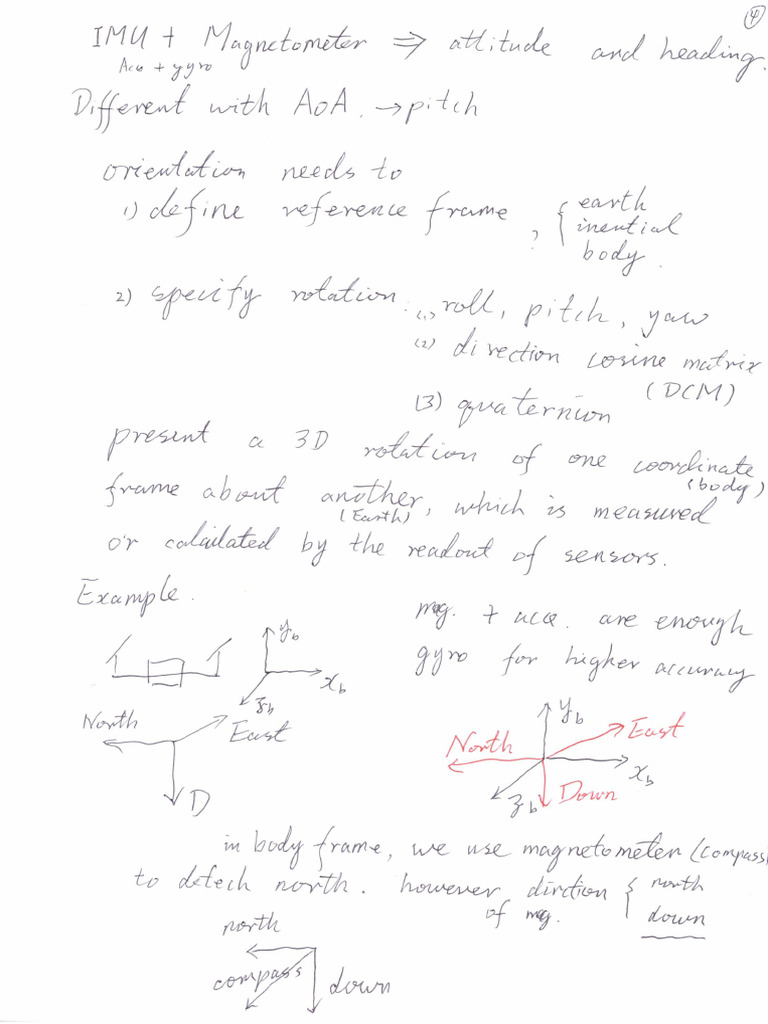 ④
IMU + Magnetometer ⇒ attitude and heading.
Acc + gyro
Different with AoA. → pitch
orientation needs to
1) define reference frame, { earth
inential
body.
2) specify rotation: (1) roll, pitch, yaw
(2) direction cosine matrix
(DCM)
(3) quaternion
present a 3D rotation of one coordinate
(body)
frame about another, which is measured
(Earth)
or calculated by the readout of sensors.
Example.
mag. + acce. are enough
gyro for higher accuracy
y_b
x_b
z_b
North
East
D
y_b
North
East
x_b
z_b
Down
in body frame, we use magnetometer (compass)
to detech north. however dirction { north
of mag. down
north
compass
down